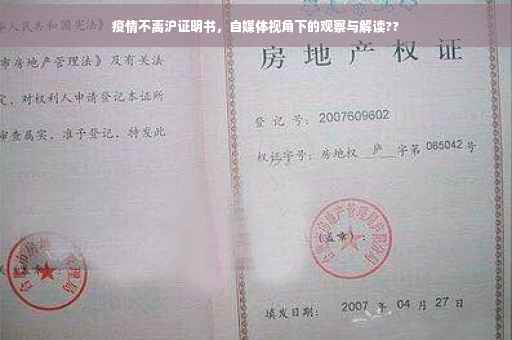 疫情不离沪证明书，自媒体视角下的观察与解读??
人民共和国宪法》
市房地产管理法》及有关法
定，对权利人申请登记本证所
审查属实，准予登记，特发此
房地产权证
登记号：2007609602
权证字号：房地权 庐 字第 065042 号
（盖章）：
填发日期：2007 年 04 月 27 日